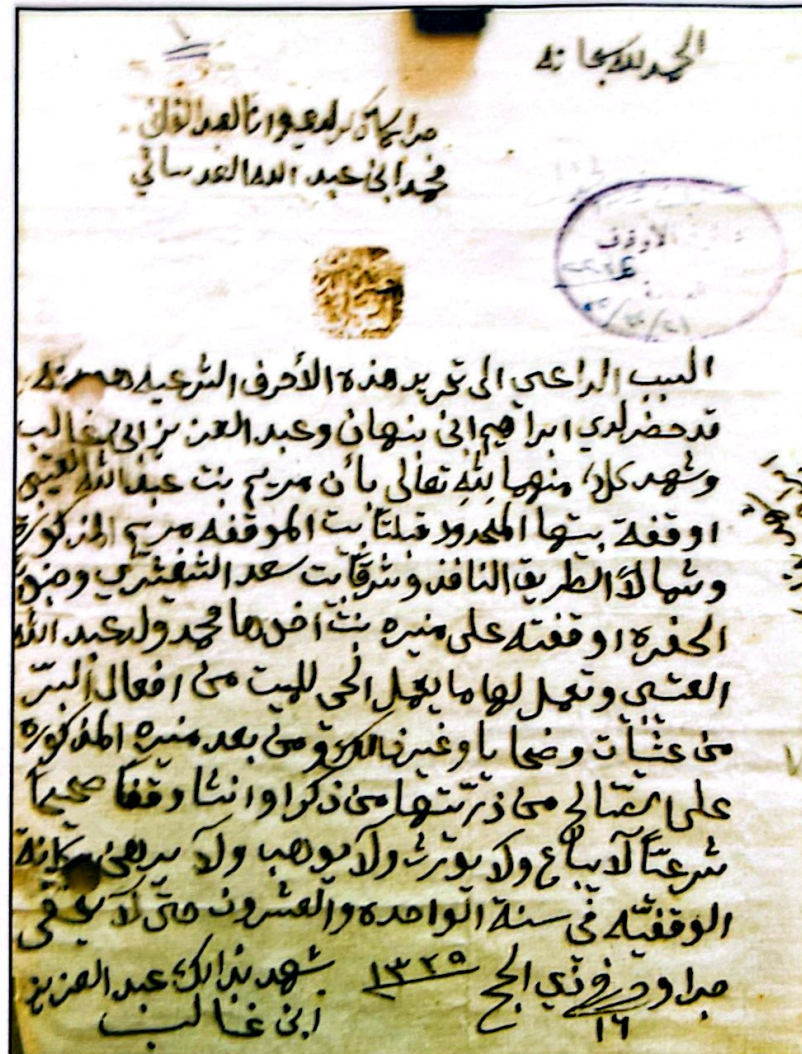 الحمد لله سبحانه
جرا كما ذكر لدي وانا العبد الفاني
محمد ابن عبد الله العدساني
الأوقاف
السبب الداعي الى تحرير هذه الأحرف الشرعيه هو انه
قد حضر لدي ابراهيم ابن نبهان وعبد العزيز ابن غالب
وشهد كلا منهما لله تعالى بأن مريم بنت عبد الله العتيقي
اوقفة بيتها المحدود قبلتاً بيت الموقفه مريم المذكورة
وشمالاً الطريق النافذ وشرقاً بيت سعد وجنوباً
الحفره اوقفته على منيره بنت اخوها محمد ولد عبد الله
العتيقي وتعمل لها ما يعمل الحي للميت من افعال البرّ
من عشيّات وضحايا وغير ذالك ومن بعد منيره المذكوره
على الصالح من ذرّيتها من ذكراً وانثا وقفاً صحيحاً
شرعيّاً لا يباع ولا يورث ولا يوهب ولا يرهن وكانة
الوقفيّه في سنة الواحده والعشرون حتى لا يخفى
جرا وحرر في ذي الحج ١٣٢٩ شهد بذالك عبد العزيز
١٦ ابن غالب